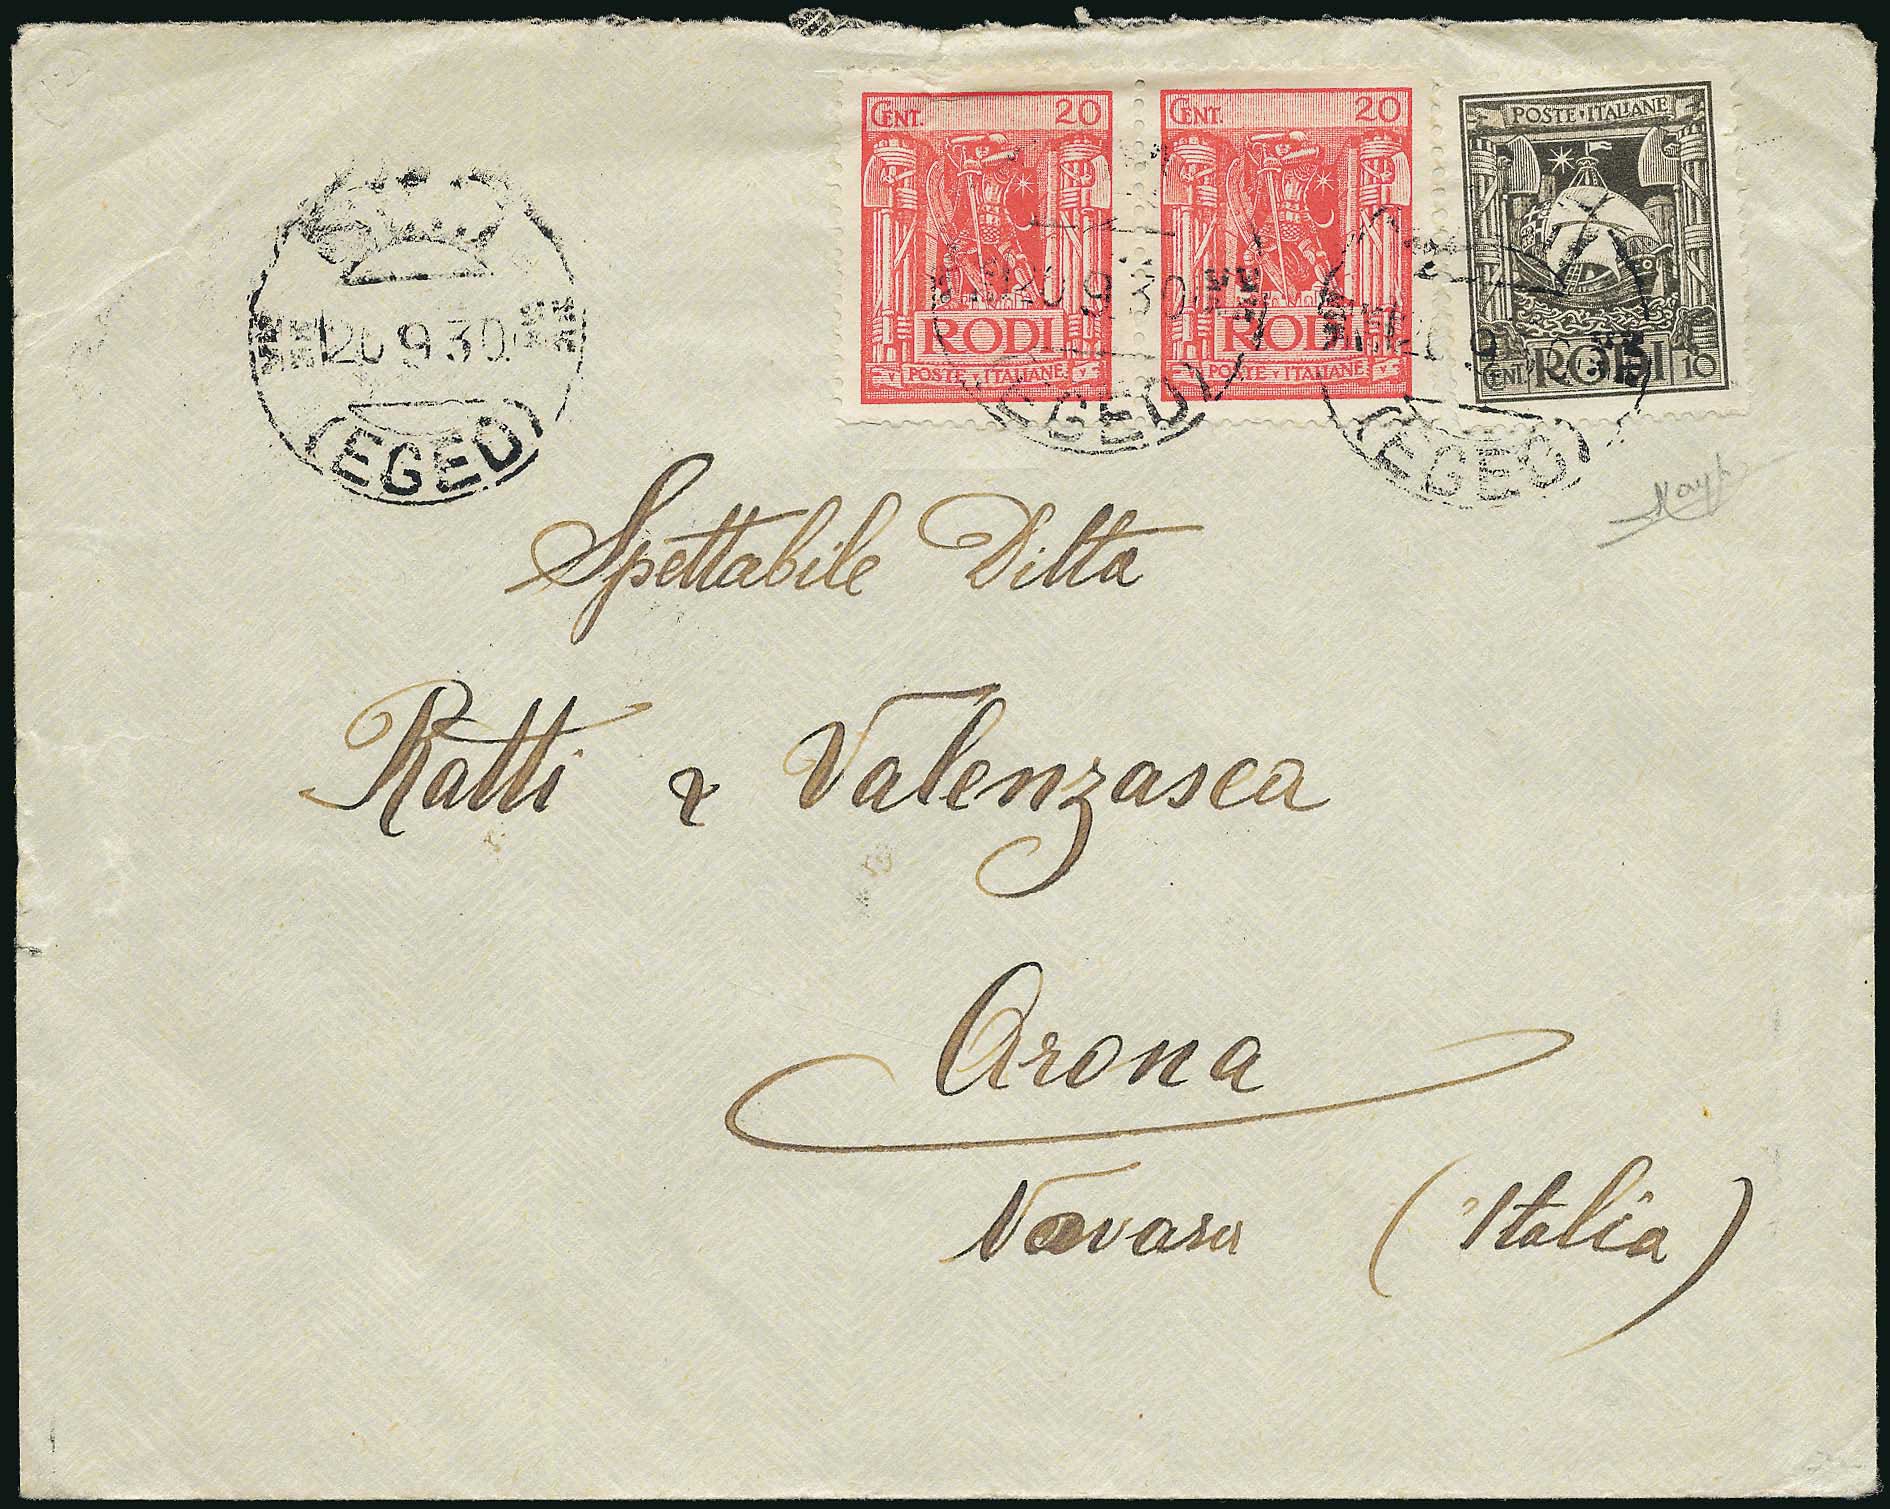 CENT. 20
RODI
POSTE ITALIANE
CENT. 20
RODI
POSTE ITALIANE
POSTE ITALIANE
CENT. RODI 10
20 9 30
(EGEO)
9 30
EGEO)
(EGEO)
Spettabile Ditta
Ratti & Valenzasca
Arona
Novara (Italia)